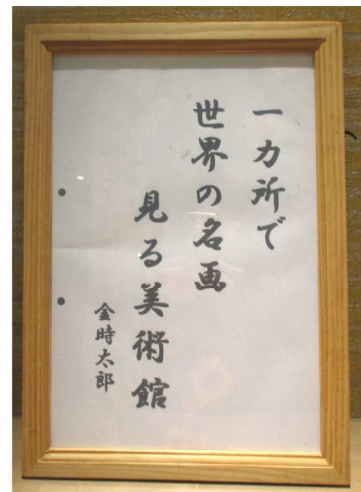 一カ所で
世界の名画
見る美術館
金時太郎